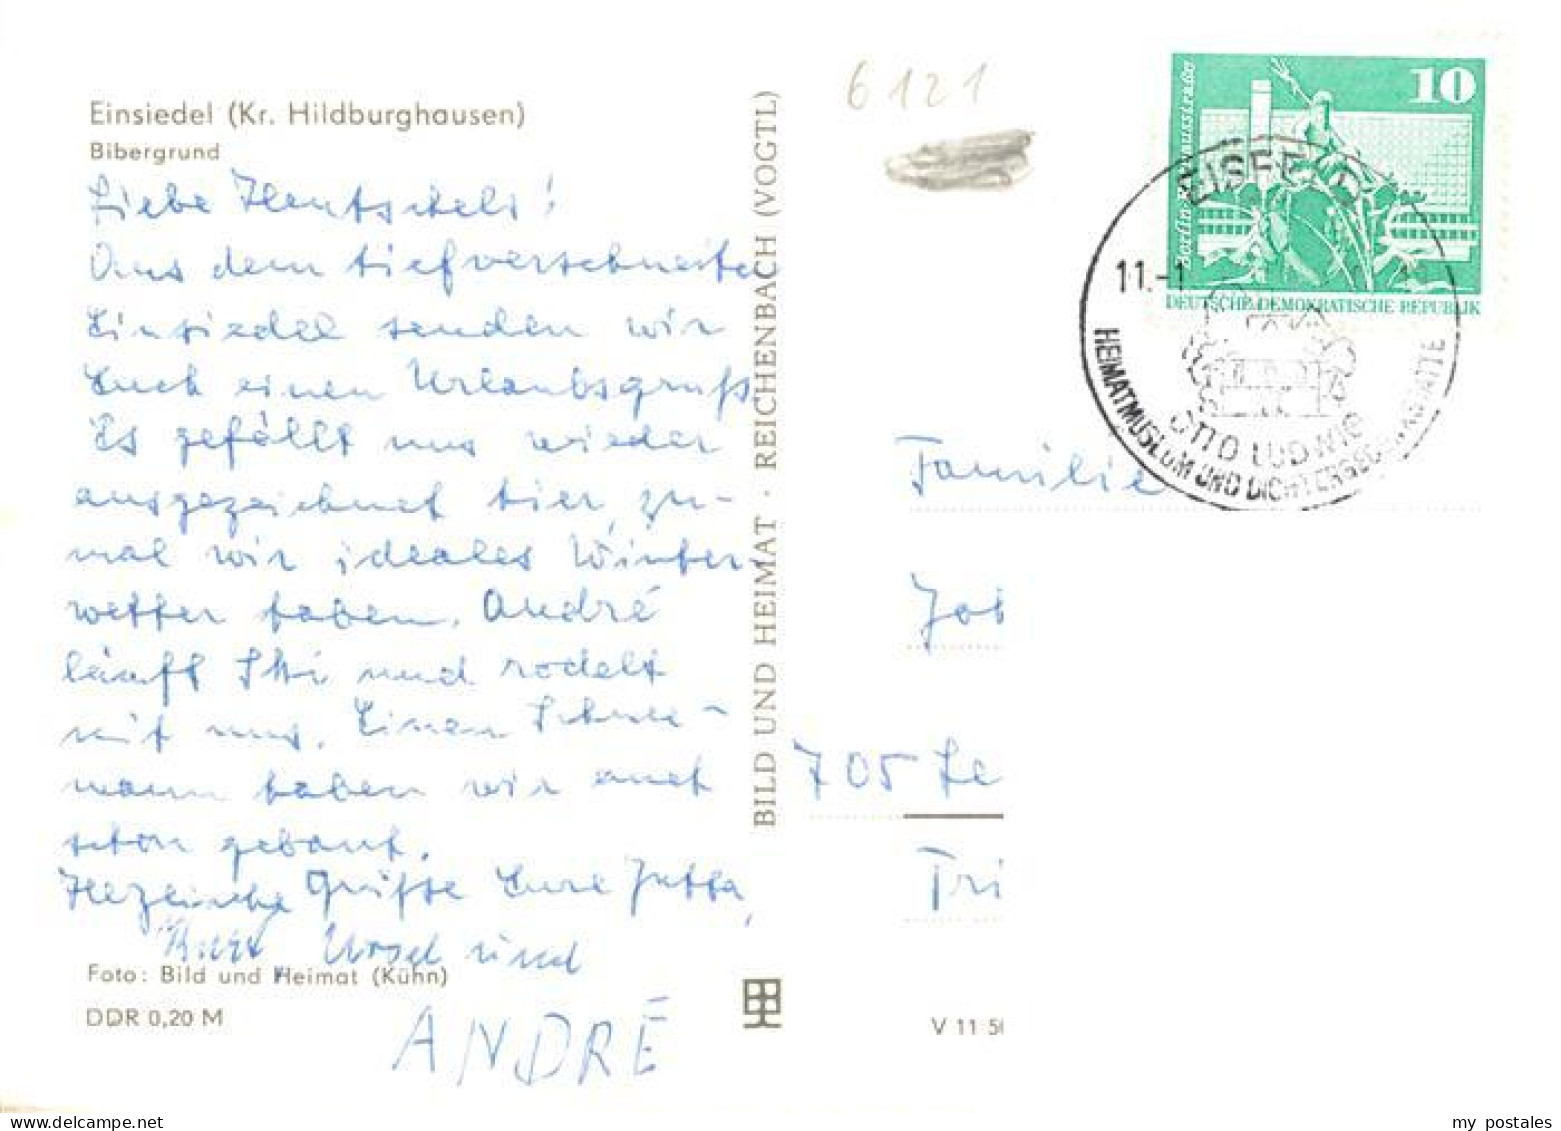 Einsiedel (Kr. Hildburghausen)
Bibergrund
Liebe Hentschels!
Aus dem tiefverschneiten
Einsiedel senden wir
Euch einen Urlaubsgruß
Es gefällt uns wieder
ausgezeichnet hier, zu-
mal wir ideales Winter-
wetter haben. André
läuft Ski und rodelt
mit uns. Einen Schnee-
mann haben wir auch
schon gebaut.
Herzliche Grüße Eure Jutta,
Kurt Ursel und
ANDRÉ
Foto: Bild und Heimat (Kühn)
DDR 0,20 M
BILD UND HEIMAT · REICHENBACH (VOGTL)
6121
10
DEUTSCHE DEMOKRATISCHE REPUBLIK
EISFELD
11.-1
OTTO LUDWIG
HEIMATMUSEUM UND
Familie
Joh
705 Le
Tri
V 11 50
my postales